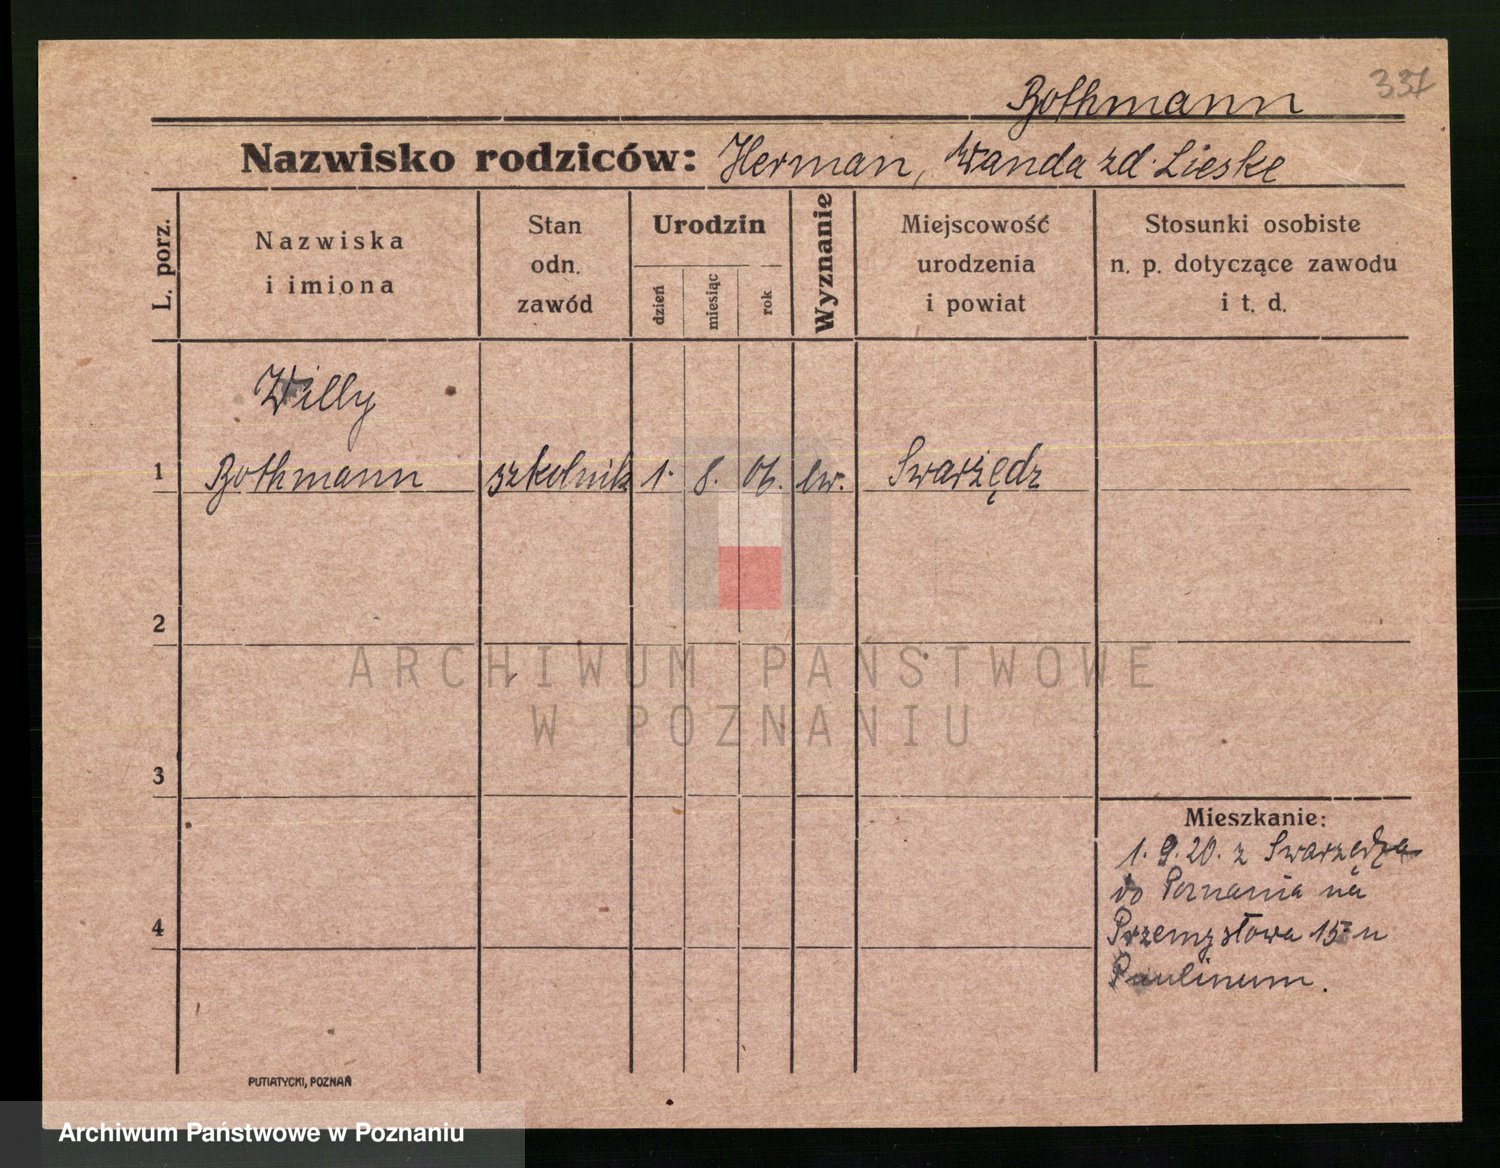 Bothmann
337
Nazwisko rodziców: Herman, Wanda zd. Lieske
L. porz.
Nazwiska
i imiona
Stan
odn.
zawód
Urodzin
dzień
miesiąc
rok
Wyznanie
Miejscowość
urodzenia
i powiat
Stosunki osobiste
n. p. dotyczące zawodu
i t. d.
Willy
1 Bothmann szkolnik 1. 8. 06. ew. Swarzędz
2
3
4
Mieszkanie:
1. 9. 20. z Swarzędza
do Poznania na
Przemysłowa 15 u
Paulinum.
PUTIATYCKI, POZNAŃ
ARCHIWUM PAŃSTWOWE
W POZNANIU
Archiwum Państwowe w Poznaniu